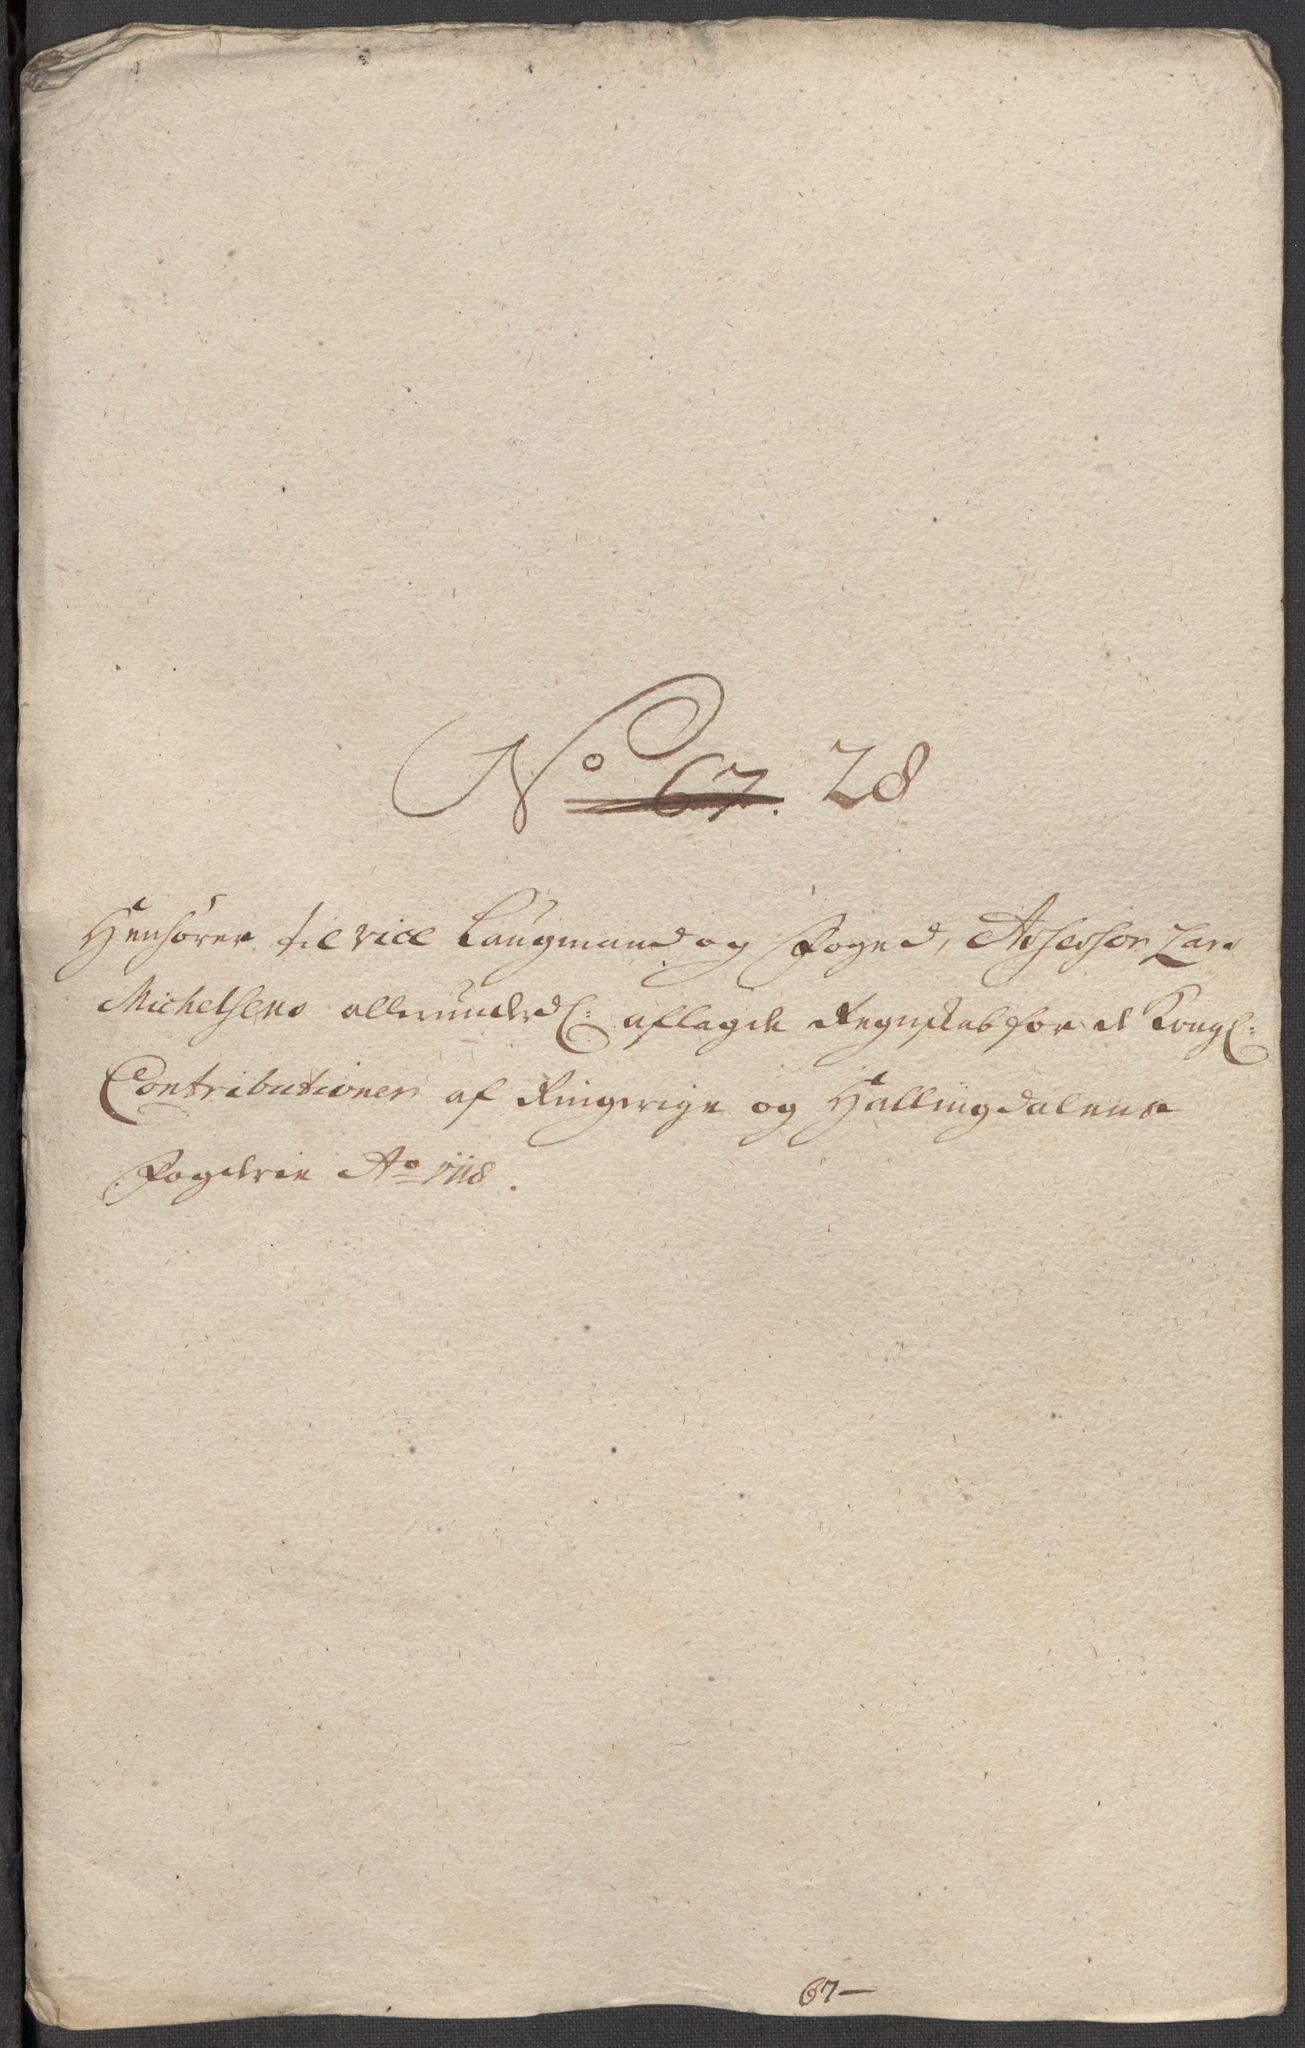 No 67. 28
Henhörer til vice Laugmand og Foged, Assessor Lars
Michelsens allerunderdl: aflagde Regnskab for de Kongl:
Contributioner af Ringerige og Hallingdalens
Fogderie Ao 1718.
67—